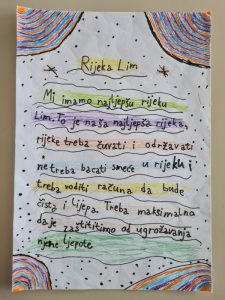 Rijeka Lim
Mi imamo najljepšu rijeku
Lim. To je naša najljepša rijeka,
rijeke treba čuvati i održavati
ne treba bacati smeće u rijeku i
treba voditi računa da bude
čista i lijepa. Treba maksimalno
da je zaštititimo od ugrožavanja
njene ljepote